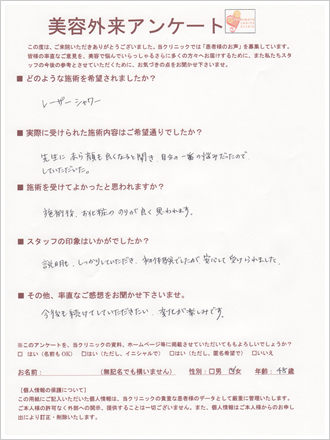 美容外来アンケート
この度は、ご来院いただきありがとうございました。当クリニックでは「患者様のお声」を募集しています。
皆様の率直なご意見を、美容で悩んでいらっしゃるさらに多くの方々へお届けするために、また私たちスタッフの今後の参考とさせていただくために、お気づきの点をお聞かせ下さいませ。
■ どのような施術を希望されましたか？
レーザーシャワー
■ 実際に受けられた施術内容はご希望通りでしたか？
先生に 赤ら顔も良くなると聞き、自分の一番の悩みだったので、
していただいた。
■ 施術を受けてよかったと思われますか？
施術後、お化粧の のりが良く思われます。
■ スタッフの印象はいかがでしたか？
説明も、しっかりしていただき、初体験でしたが安心して受けられました。
■ その他、率直なご感想をお聞かせ下さいませ。
今後も続けてしていただきたい、変化が楽しみです。
※このアンケートを、当クリニックの資料、ホームページ等に掲載させていただいてもよろしいでしょうか？
□ はい（名前もOK） □ はい（ただし、イニシャルで） □はい（ただし、匿名希望で） □いいえ
お名前： （無記名でも構いません） 性別：□男 □女 年齢：45歳
【個人情報の保護について】
この用紙にご記入いただいた個人情報は、当クリニックの貴重な患者様のデータとして厳重に管理いたします。
ご本人様の許可なく外部への開示、提供することは一切ございません。また、個人情報はご本人様からのお申し出により訂正・削除いたします。